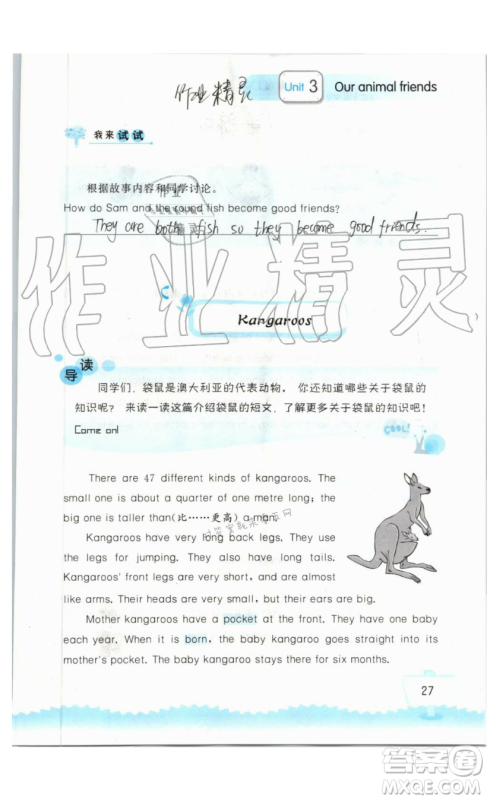 作业精灵
Unit 3 Our animal friends
我来试试
根据故事内容和同学讨论。
How do Sam and the round fish become good friends?
They are both fish so they become good friends.
作业精灵
Kangaroos
导读
同学们，袋鼠是澳大利亚的代表动物，你还知道哪些关于袋鼠
的知识呢？来读一读这篇介绍袋鼠的短文，了解更多关于袋鼠的知识吧！
Come on!
COOL!
There are 47 different kinds of kangaroos. The
small one is about a quarter of one metre long; the
big one is taller than(比……更高) a man.
Kangaroos have very long back legs. They use
the legs for jumping. They also have long tails.
Kangaroos' front legs are very small, and are almost
like arms. Their heads are very small, but their ears are big.
Mother kangaroos have a pocket at the front. They have one baby
each year. When it is born, the baby kangaroo goes straight into its
mother's pocket. The baby kangaroo stays there for six months.
27
答案圈
MXQE.COM